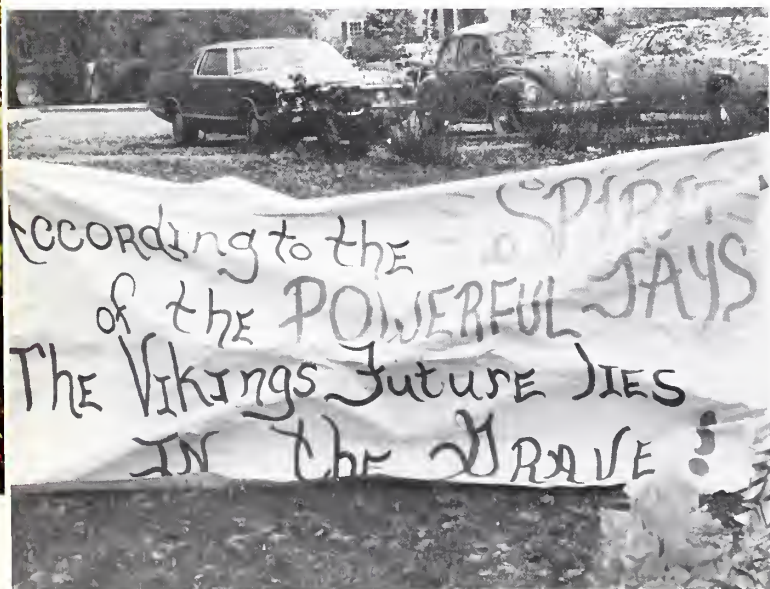 According to the SPIRIT
of the POWERFUL JAYS
The Vikings Future LIES
IN the GRAVE !